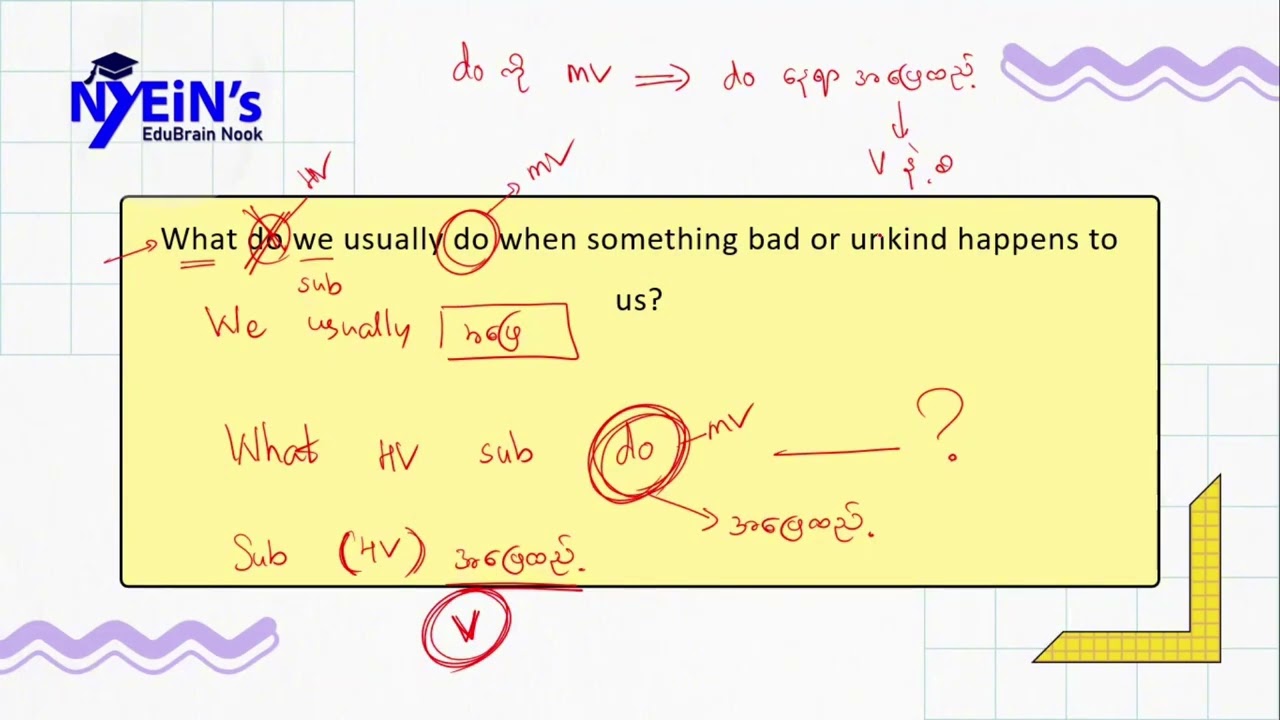 do ကို mv ⇒ do နေရာ အဖြေထည့်
NYEiN'S
EduBrain Nook
V နဲ့ စ
HV
mV
What do we usually do when something bad or unkind happens to
sub
us?
We usually အဖြေ
What HV sub do mV ?
အဖြေထည့်.
Sub (HV) အဖြေထည့်.
V